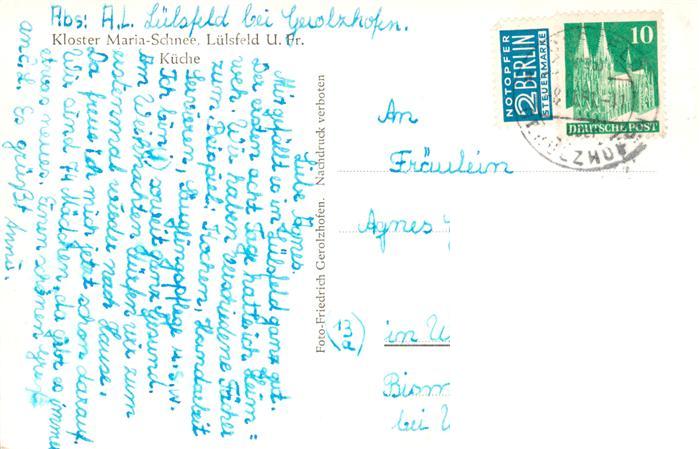 Abs: A.L. Lülsfeld bei Gerolzhofen.
Kloster Maria-Schnee, Lülsfeld U. Fr.
Küche
Liebe Agnes.
Mir gefällt es in Lülsfeld ganz gut.
Die ersten acht Tage hatte ich Heim=
weh. Wir haben verschiedene Fächer
zum Beispiel: Kochen, Handarbeit
Servieren, Säuglingspflege u.s.w.
Ich bin soweit ganz gesund.
Am Weihnachten dürfen wir zum
erstenmal wieder nach Hause,
da freue ich mich jetzt schon darauf.
Wir sind 74 Mädchen, da gibt es immer
etwas neues. Einen schönen Gruß
an Es grüßt Anni.
Foto-Friedrich Gerolzhofen. Nachdruck verboten
NOTOPFER
2 BERLIN
STEUERMARKE
10
DEUTSCHE POST
An
Fräulein
Agnes
(13a)
in U
Bism
bei